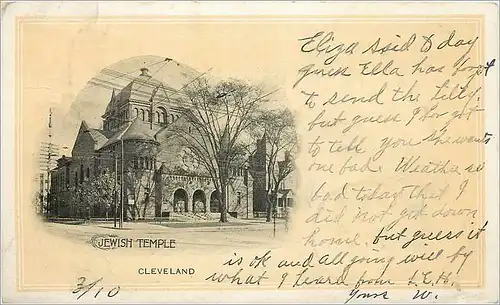 Eliza said to day
guess Ella has forgot
to send the lilly.
but guess I forgot
to tell you she wants
one bad. Weather so
bad today that I
did not get down
home, but guess it
is ok and all going well by
what I learn from L.E.H.
Yours W.
JEWISH TEMPLE
CLEVELAND
3/10